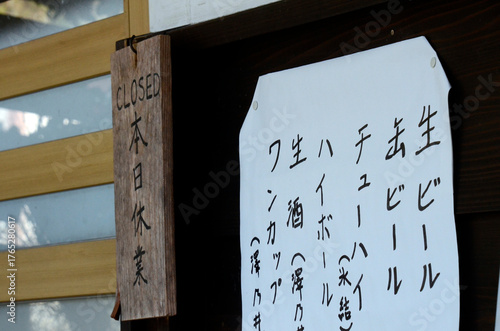 CLOSED
本日休業
生ビール
缶ビール
チューハイ（氷結）
ハイボール
生酒（澤乃井
ワンカップ（澤乃井